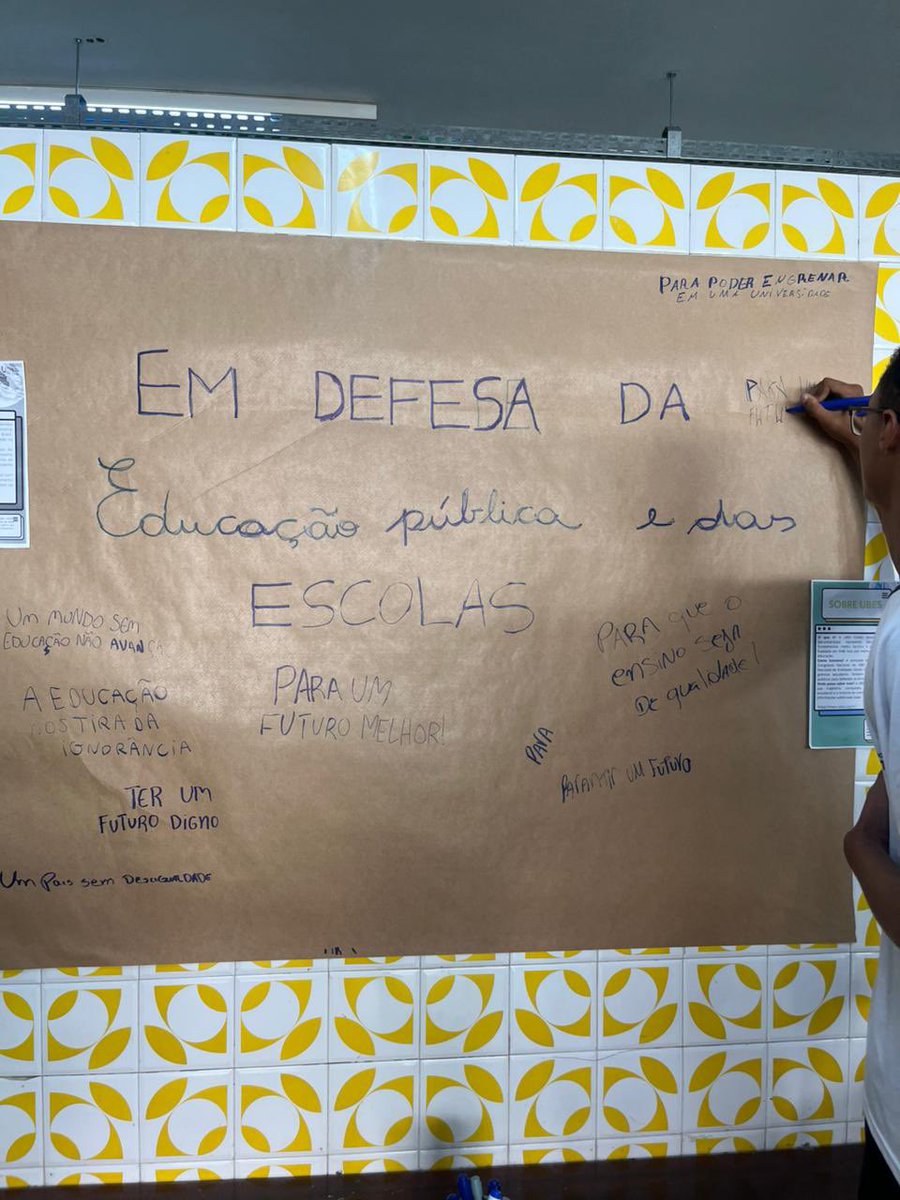 PARA PODER ENGRENAR
EM UMA UNIVERSIDADE
EM DEFESA DA
PARA UM
FUTU
Educação pública e das
ESCOLAS
UM MUNDO SEM
EDUCAÇÃO NÃO AVANÇA
A EDUCAÇÃO
NOS TIRA DA
IGNORÂNCIA
TER UM
FUTURO DIGNO
Um País sem DESIGUALDADE
PARA UM
FUTURO MELHOR!
PARA QUE O
ENSINO SEJA
DE qualidade!
PARA
UM FUTURO
SOBRE UBES